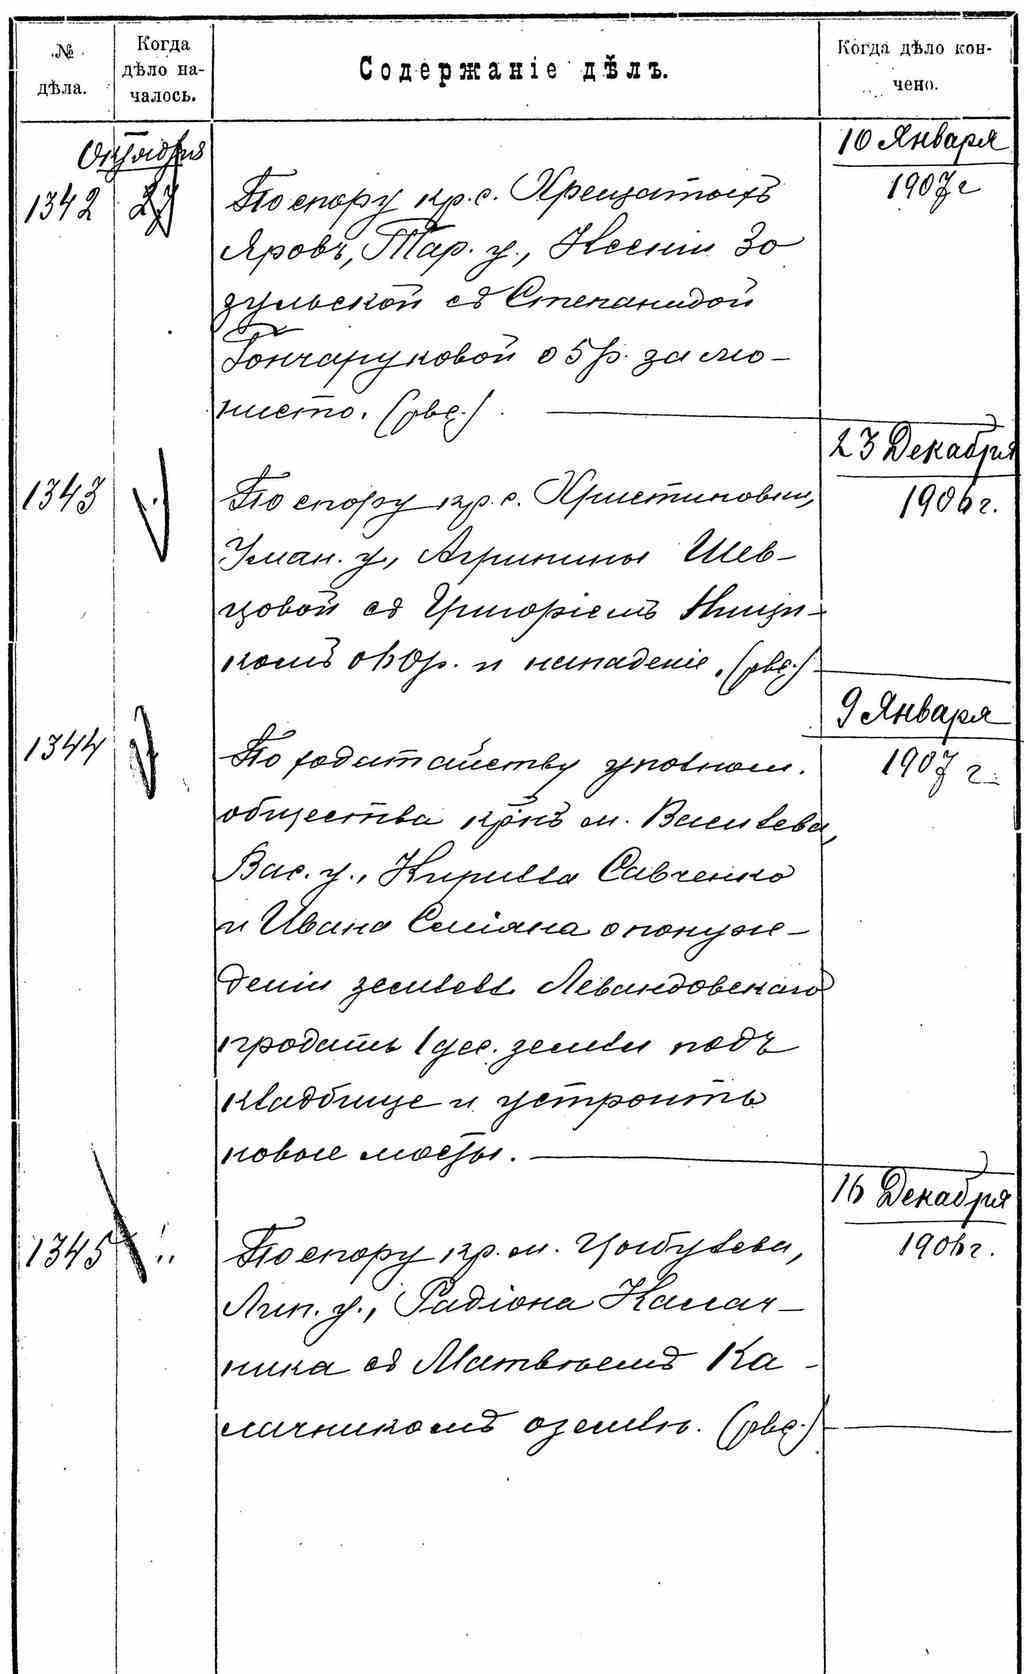 № дѣла.
Когда дѣло на-
чалось.
Содержаніе дѣлъ.
Когда дѣло кон-
чено.
Октября
1342
27
По спору кр. с. Хрещатыхъ
Яровъ, Тар. у., Ксеніи Зо
зульской съ Степанидой
Гончаруковой о 5 р. за мо-
нисто. (рвс.)
10 Января
1907 г
1343
По спору кр. с. Христиновки,
Уман. у., Агрипины Шев-
цовой съ Григоріемъ Нищи-
комъ о 60 р. и нападеніе. (рвс.)
23 Декабря
1906 г.
1344
По ходатайству уполном.
общества кр-нъ м. Василева,
Вас. у., Кирилла Савченко
и Ивана Сміяна о понуж-
деніи землевл. Левандовскаго
продать 1 дес. земли подъ
кладбище и устроить
новые мосты.
9 Января
1907 г.
1345
По спору кр. м. Цыбулева,
Лип. у., Радіона Калач-
ника съ Матвѣемъ Ка-
лачникомъ о землѣ. (рвс.)
16 Декабря
1906 г.